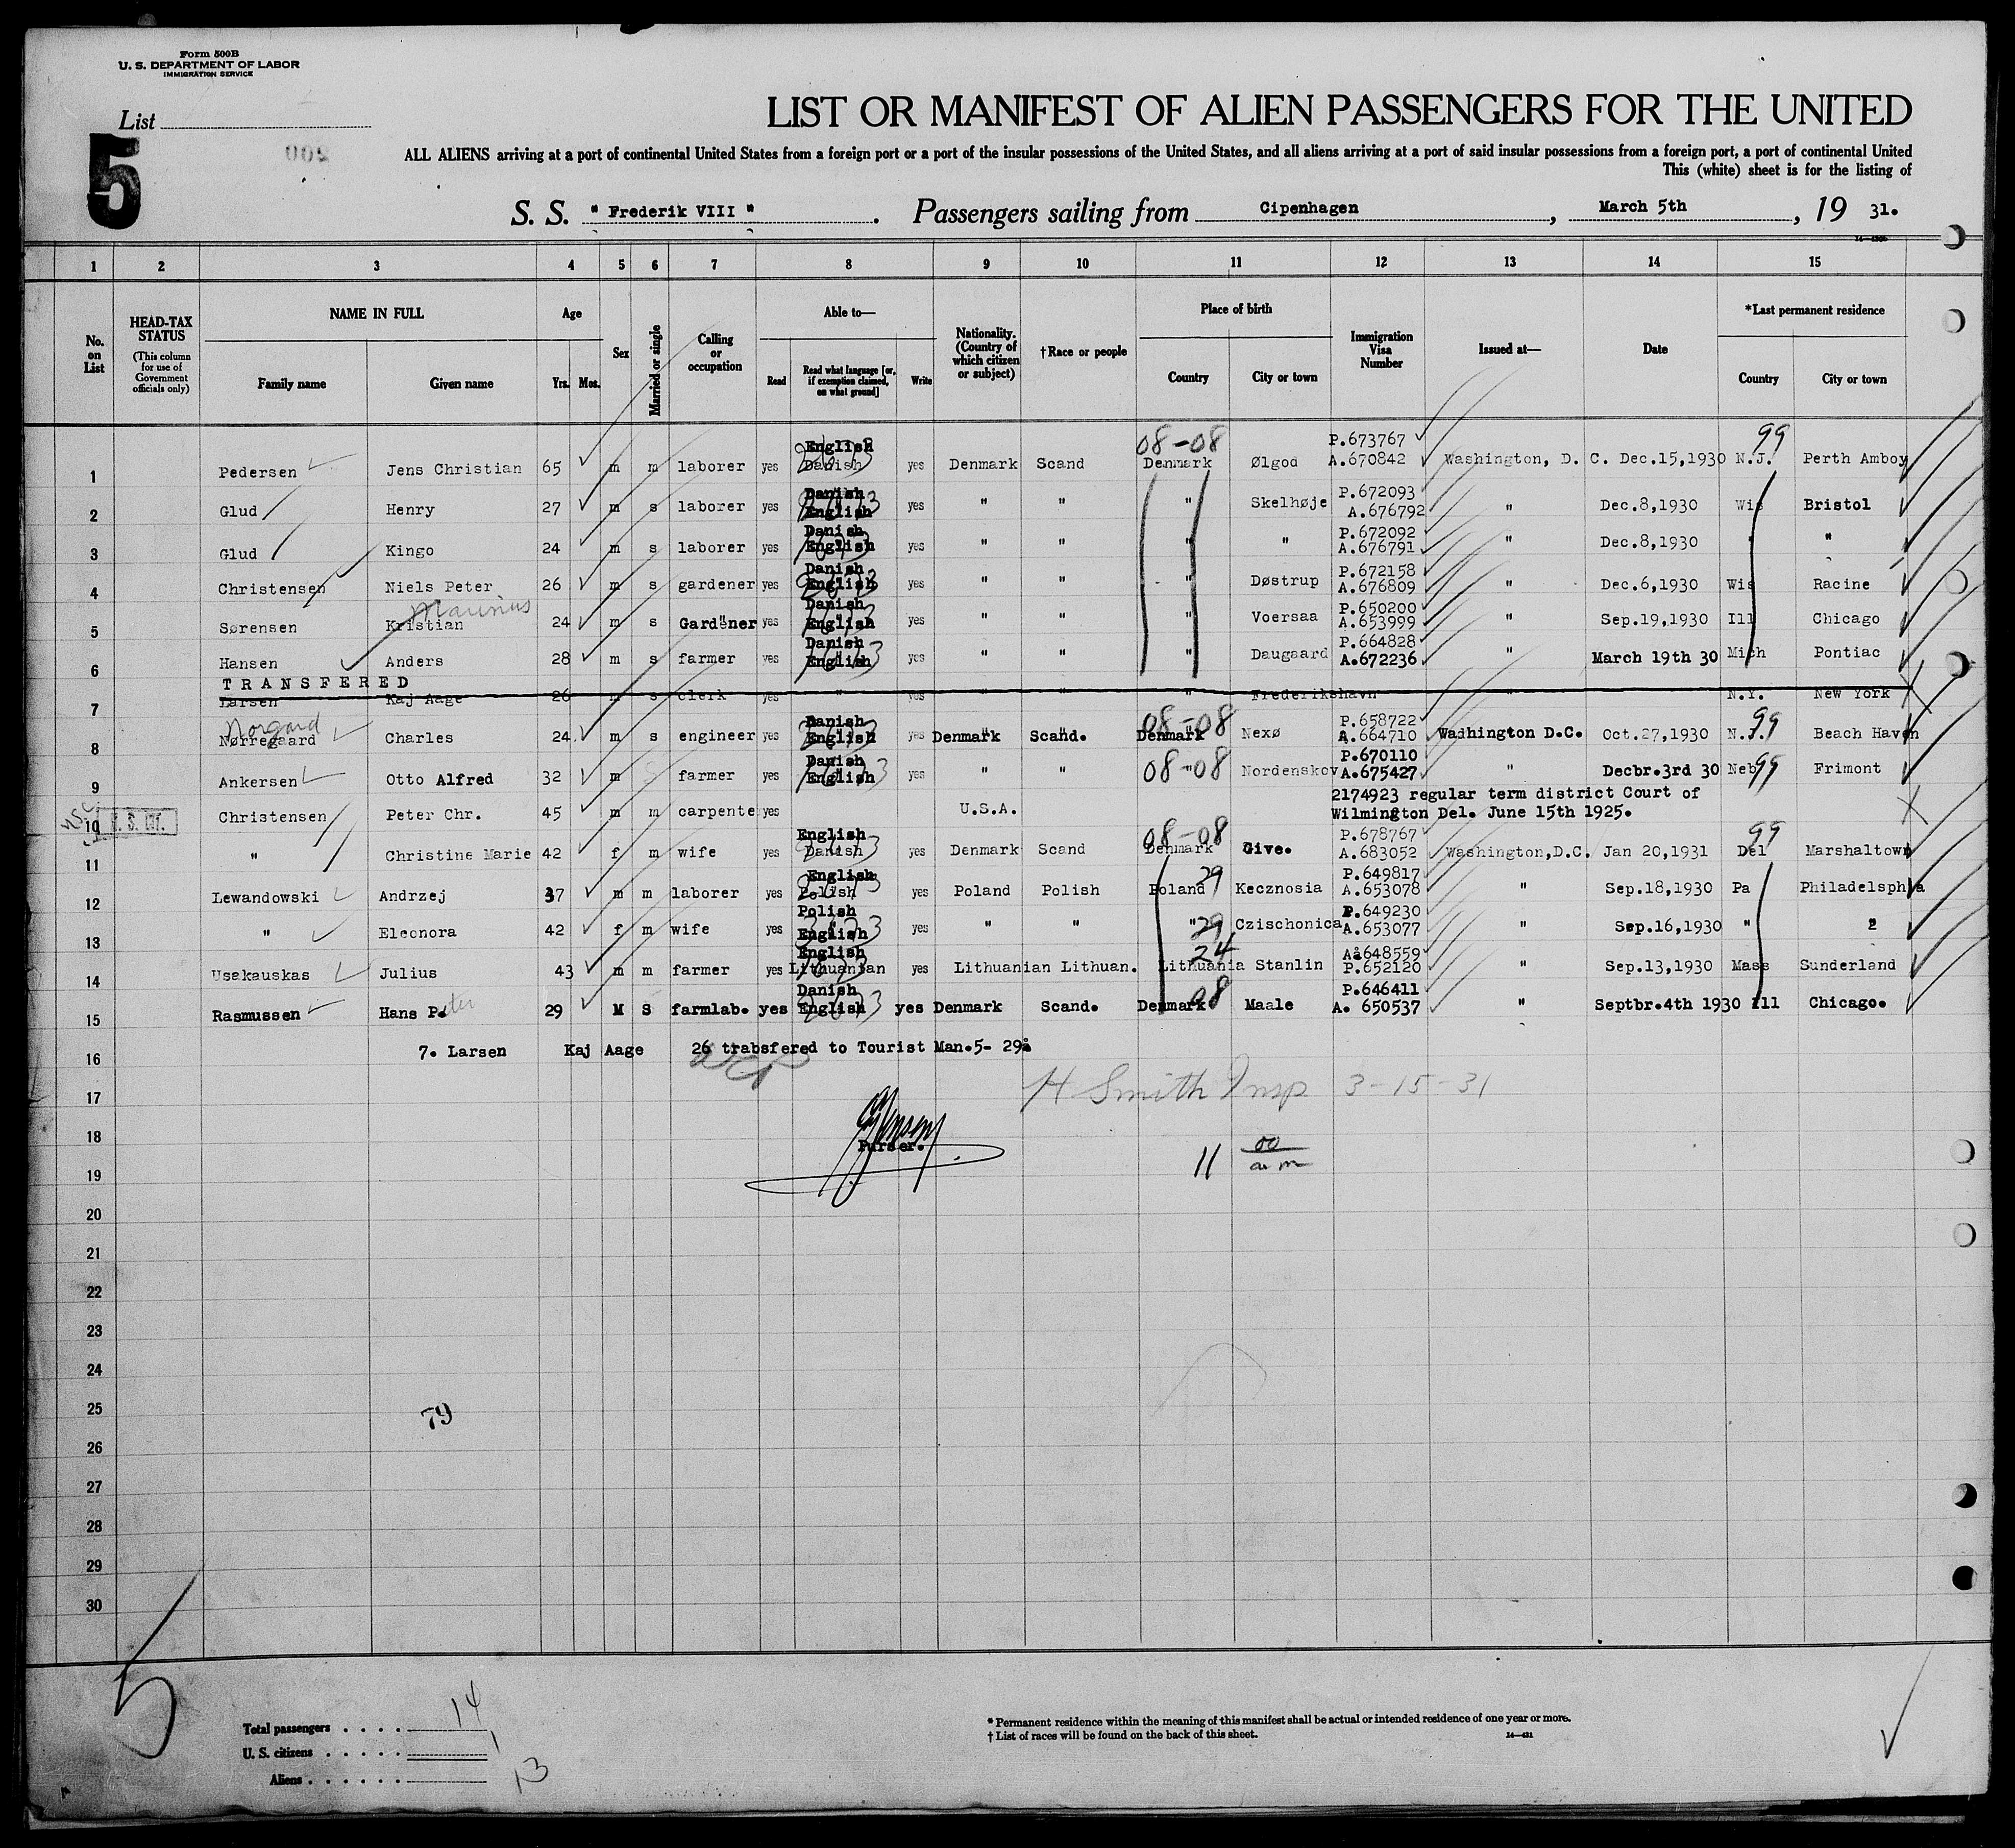 Form 500B
U. S. DEPARTMENT OF LABOR
IMMIGRATION SERVICE
List
5
LIST OR MANIFEST OF ALIEN PASSENGERS FOR THE UNITED
ALL ALIENS arriving at a port of continental United States from a foreign port or a port of the insular possessions of the United States, and all aliens arriving at a port of said insular possessions from a foreign port, a port of continental United
This (white) sheet is for the listing of
S. S. " Frederik VIII " . Passengers sailing from Cipenhagen , March 5th , 19 31.
1 2 3 4 5 6 7 8 9 10 11 12 13 14 15
No. on List
HEAD-TAX STATUS (This column for use of Government officials only)
NAME IN FULL
Family name Given name
Age
Yrs. Mos.
Sex
Married or single
Calling or occupation
Able to—
Read Read what language [or, if exemption claimed, on what ground] Write
Nationality. (Country of which citizen or subject)
†Race or people
Place of birth
Country City or town
Immigration Visa Number
Issued at—
Date
*Last permanent residence
Country City or town
1 Pedersen Jens Christian 65 m m laborer yes English Danish yes Denmark Scand 08-08 Denmark Ølgod P.673767 A.670842 Washington, D. C. Dec.15,1930 99 N.J. Perth Amboy
2 Glud Henry 27 m s laborer yes Danish English yes " " " Skelhøje P.672093 A.676792 " Dec.8,1930 Wis Bristol
3 Glud Kingo 24 m s laborer yes Danish English yes " " " " P.672092 A.676791 " Dec.8,1930 " "
4 Christensen Niels Peter 26 m s gardener yes Danish English yes " " " Døstrup P.672158 A.676809 " Dec.6,1930 Wis Racine
5 Sørensen Kristian Marinus 24 m s Gardener yes Danish English yes " " " Voersaa P.650200 A.653999 " Sep.19,1930 Ill Chicago
6 Hansen Anders 28 m s farmer yes Danish English yes " " " Daugaard P.664828 A.672236 " March 19th 30 Mich Pontiac
TRANSFERED
7 Larsen Kaj Aage 26 m s clerk yes " yes " " " Frederikshavn " N.Y. New York
8 Norgard Nørregaard Charles 24 m s engineer yes Danish English yes Denmark Scand. 08-08 Denmark Nexø P.658722 A.664710 Wadhington D.C. Oct.27,1930 99 N.J. Beach Haven
9 Ankersen Otto Alfred 32 m farmer yes Danish English yes " " 08-08 " Nordenskov P.670110 A.675427 " Decbr.3rd 30 Neb 99 Frimont
10 Christensen Peter Chr. 45 m m carpente yes U.S.A. 2174923 regular term district Court of
Wilmington Del. June 15th 1925.
11 " Christine Marie 42 f m wife yes English Danish yes Denmark Scand 08-08 Denmark Give. P.678767 A.683052 Washington,D.C. Jan 20,1931 99 Del Marshaltown
12 Lewandowski Andrzej 37 m m laborer yes English Polish yes Poland Polish Poland 29 Kecznosia P.649817 A.653078 " Sep.18,1930 Pa Philadelsphia
13 " Eleonora 42 f m wife yes Polish English yes " " " 29 Czischonica P.649230 A.653077 " Sep.16,1930 " "
14 Usakauskas Julius 43 m m farmer yes English Lithuanian yes Lithuanian Lithuan. 24 Lithuania Stanlin Aå648559 P.652120 " Sep.13,1930 Mass Sunderland
15 Rasmussen Hans Peter 29 M S farmlab. yes Danish English yes Denmark Scand. Denmark 08 Maale P.646411 A. 650537 " Septbr.4th 1930 Ill Chicago.
16 7. Larsen Kaj Aage 26 trabsfered to Tourist Man.5- 29
17 H Smith Insp 3-15-31
18 Purser.
19 11 00 am
20
21
22
23
24
25 79
26
27
28
29
30
5
Total passengers . . . . 14
U. S. citizens . . . . . 1
Aliens . . . . . . 13
* Permanent residence within the meaning of this manifest shall be actual or intended residence of one year or more.
† List of races will be found on the back of this sheet.
14—431